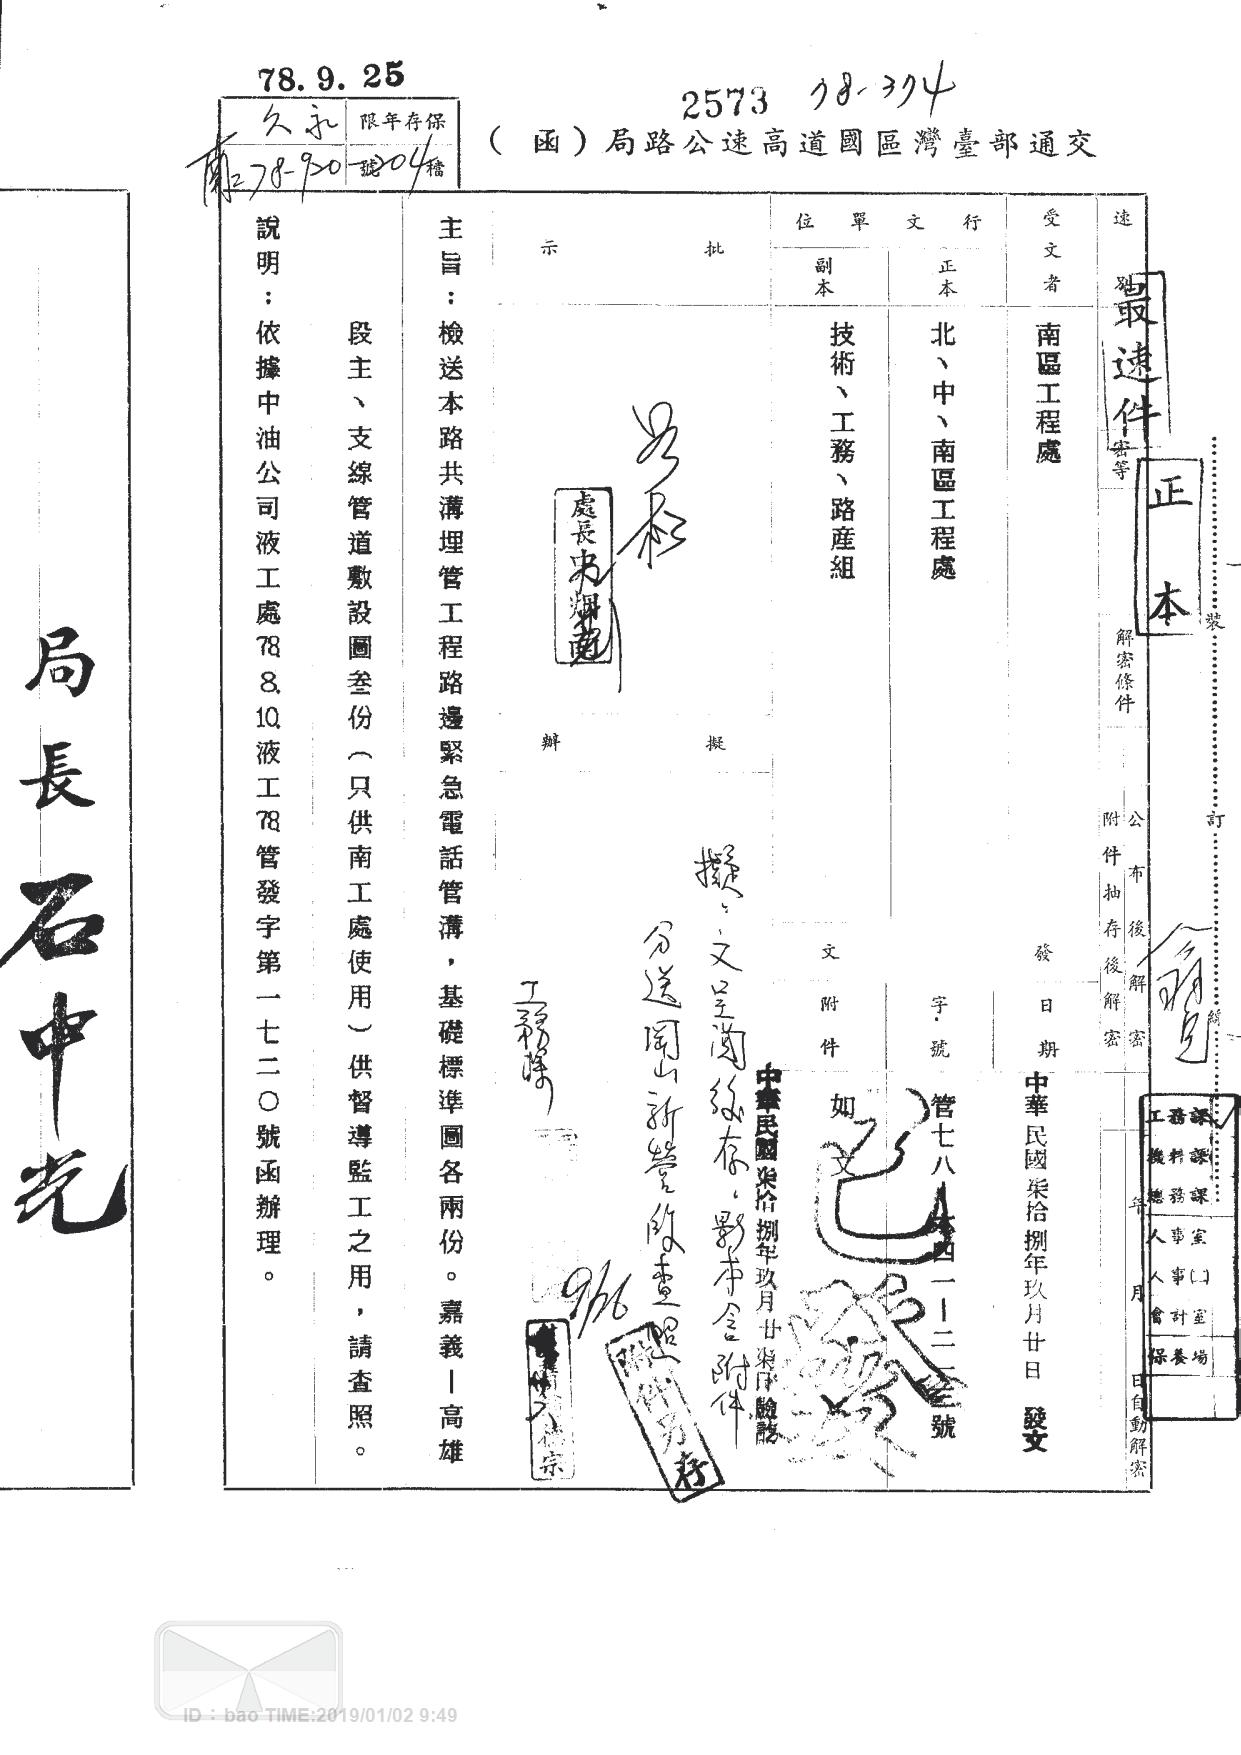 78.9.25
2573 78-374
交通部臺灣區國道高速公路局（函）
保存年限
永久
檔號
204
78-920
速別
最速件
密等
解密條件
公布後解密
附件抽存後解密
年月日自動解密
正本
裝
訂
線
受文者
南區工程處
行文單位
正本
北、中、南區工程處
副本
技術、工務、路產組
發文
日期
中華民國柒拾捌年玖月廿日 發文
字號
附件
如文
已
批示
處長
擬辦
擬：文呈閱後存，影本含附件
分送岡山新營段查照
工務課
9/26
附件另存
中華民國柒拾捌年玖月廿柒日
工務課
機料課
總務課
人事室
人事(二)
會計室
保養場
主旨：檢送本路共溝埋管工程路邊緊急電話管溝，基礎標準圖各兩份。嘉義－高雄
段主、支線管道敷設圖叁份（只供南工處使用）供督導監工之用，請查照。
說明：依據中油公司液工處78.8.10.液工78管發字第一七二〇號函辦理。
局長石中光
ID：bao TIME:2019/01/02 9:49